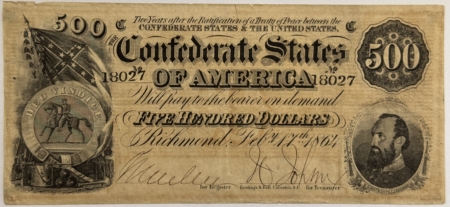 500 C Two Years after the Ratification of a Treaty of Peace between the C 500
CONFEDERATE STATES & THE UNITED STATES,
THE Confederate States
18027 No 18027
OF AMERICA
Will pay to the bearer on demand
FIVE HUNDRED DOLLARS
Richmond, Feb. 17th 1864
DEO VINDICE
for Register for Treasurer